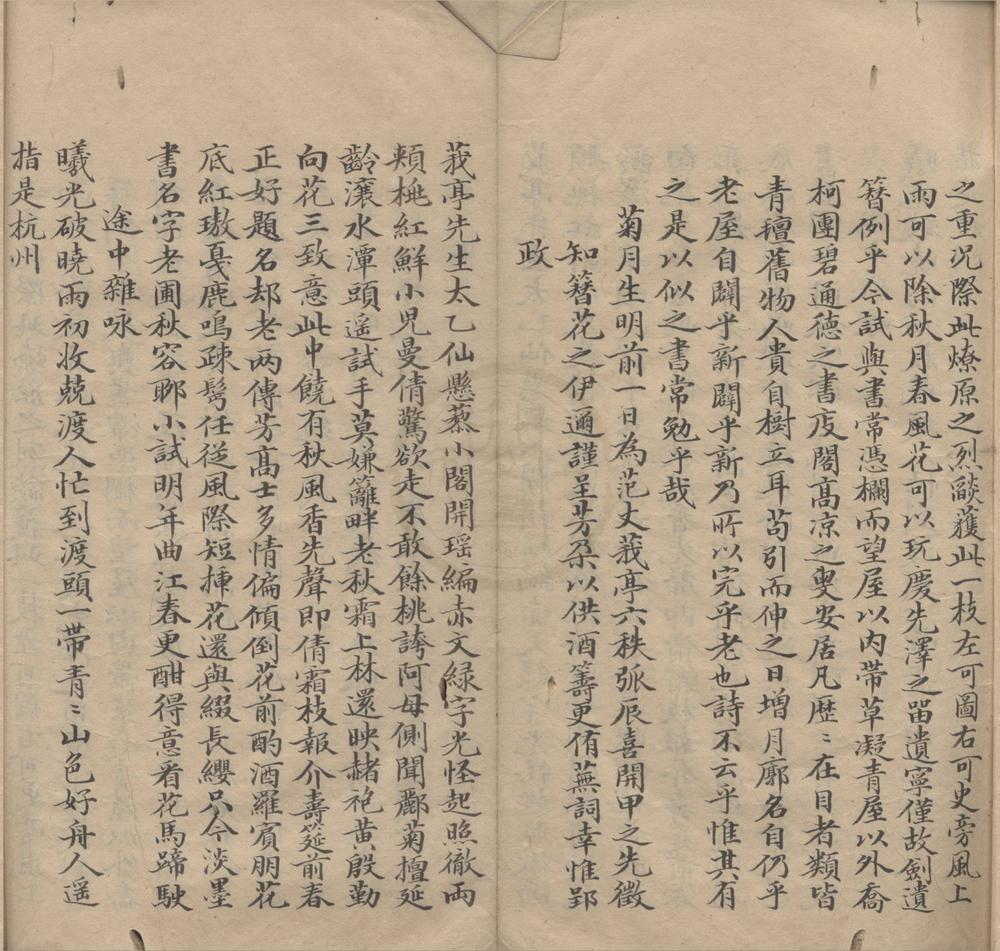 之重况際此燎原之烈燄獲此一枝左可圖右可史旁風上
雨可以除秋月春風花可以玩慶先澤之畱遺寧僅故劍遺
簪例乎今試與書常憑欄而望屋以內帶草凝青屋以外喬
柯團碧通德之書庋閣高凉之叟安居凡歷〻在目者類皆
青氊舊物人貴自樹立耳苟引而伸之日增月廓名自仍乎
老屋自闢乎新闢乎新乃所以完乎老也詩不云乎惟其有
之是以似之書常勉乎哉
菊月生明前一日為范丈莪亭六秩弧辰喜開甲之先徵
知簪花之伊邇謹呈芳朶以供酒籌更侑蕪詞幸惟郢
政
莪亭先生太乙仙懸藜小閣開瑶編赤文緑字光怪起照徹両
頰桃紅鮮小児曼倩驚欲走不敢餘桃誇阿母側聞酈菊擅延
齡瀼水潭頭遥試手莫嫌籬畔老秋霜上林還映赭袍黄殷勤
向花三致意此中饒有秋風香先聲即倩霜枝報介壽筵前春
正好題名却老两傳芳髙士多情偏傾倒花前酌酒羅賓朋花
底紅璈戞鹿鳴疎髩任従風際短揷花還與綴長纓只今淡墨
書名字老圃秋容聊小試明年曲江春更酣得意看花馬蹄駛
途中雜咏
曦光破曉雨初收兢渡人忙到渡頭一帶青〻山色好舟人遥
指是杭州